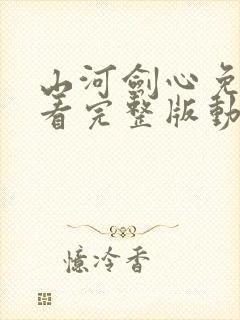 山河劍心免
看完整版動
憶冷香